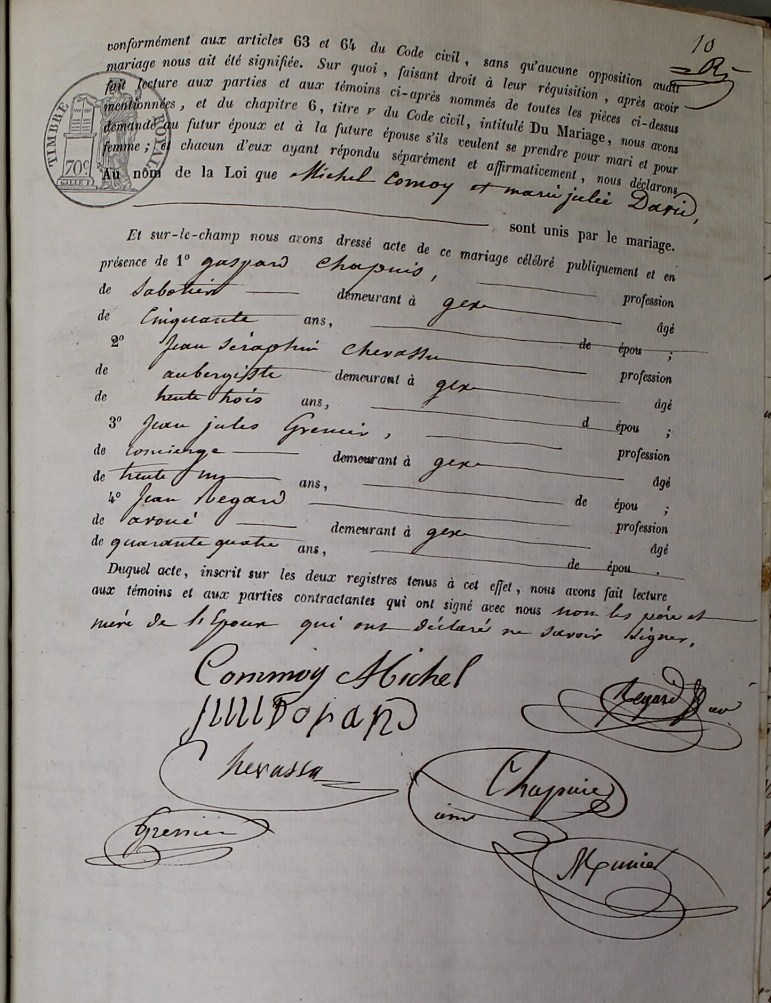 10
conformément aux articles 63 et 64 du Code civil, sans qu'aucune opposition audit
mariage nous ait été signifiée. Sur quoi, faisant droit à leur réquisition, après avoir
fait lecture aux parties et aux témoins ci-après nommés de toutes les pièces ci-dessus
mentionnées, et du chapitre 6, titre v du Code civil, intitulé Du Mariage, nous avons
demandé au futur époux et à la future épouse s'ils veulent se prendre pour mari et pour
femme; et chacun d'eux ayant répondu séparément et affirmativement, nous déclarons,
Au nom de la Loi que Michel Comoy et marie julie David,
sont unis par le mariage.
TIMBRE ROYAL
70c
Et sur-le-champ nous avons dressé acte de ce mariage célébré publiquement et en
présence de 1º gaspard Chapuis, profession
de Sabotier demeurant à gex âgé
de Cinquante ans, de épou ;
2º Jean Séraphin Chevassu profession
de aubergiste demeurant à gex âgé
de trente trois ans, d épou ;
3º Jean jules Grenier, profession
de concierge demeurant à gex âgé
de trente ans, de épou ;
4º Jean Regard profession
de avoué demeurant à gex âgé
de quarante quatre ans, de épou .
Duquel acte, inscrit sur les deux registres tenus à cet effet, nous avons fait lecture
aux témoins et aux parties contractantes qui ont signé avec nous non les père et
mère de l'Epoux qui ont déclaré ne savoir signer.
Commoy Michel
Regard
Chevassu
Chapuis
Grenier
Munier